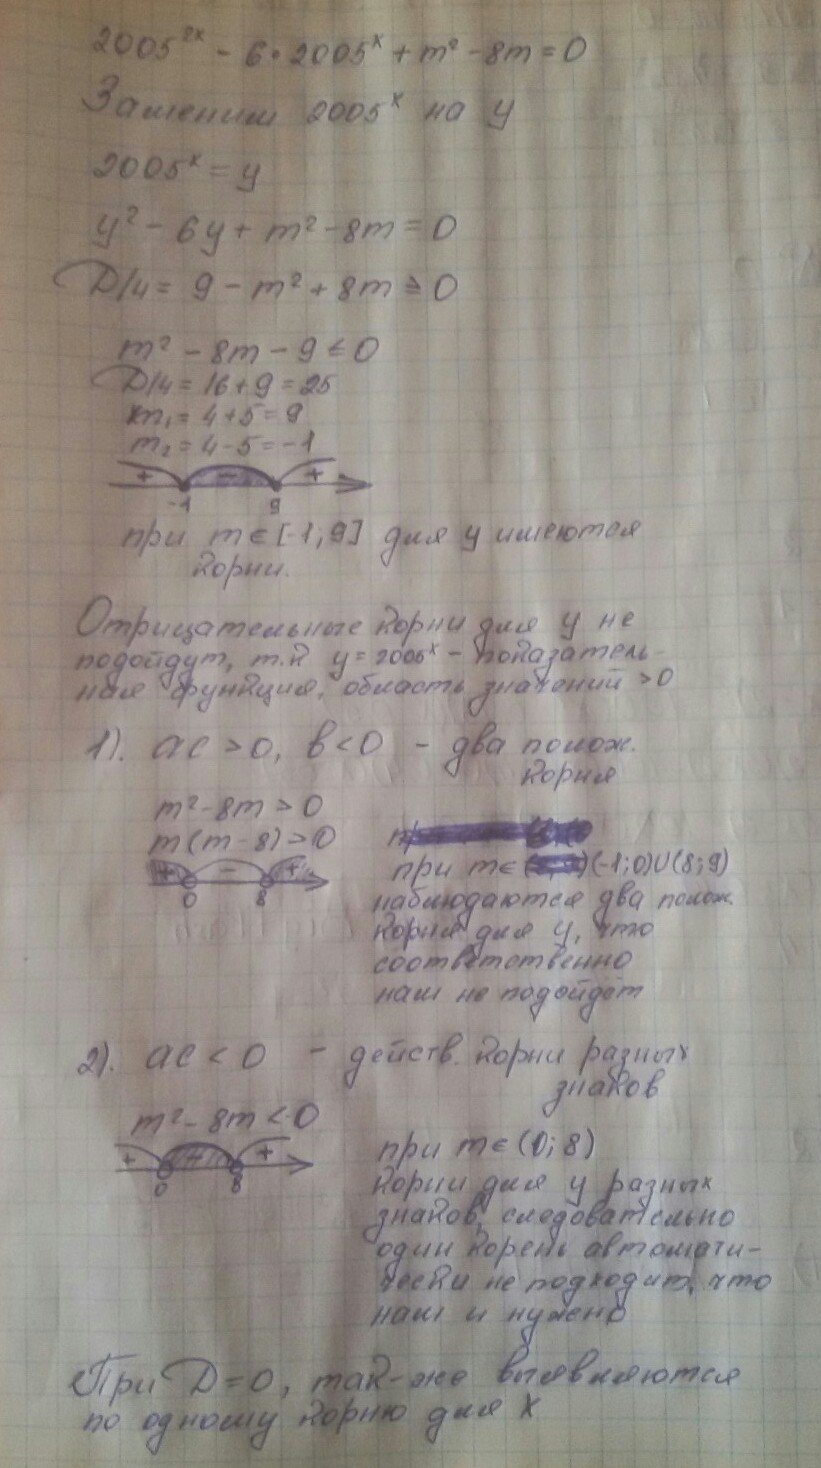 2005^2x - 6·2005^x + m² - 8m = 0
Заменим 2005^x на y
2005^x = y
y² - 6y + m² - 8m = 0
D/4 = 9 - m² + 8m ≥ 0
m² - 8m - 9 ≤ 0
D/4 = 16 + 9 = 25
m₁ = 4+5 = 9
m₂ = 4-5 = -1
+ - +
-1 9
при m ∈ [-1; 9] для y имеются
корни.
Отрицательные корни для y не
подойдут, т.к y = 2005^x - показатель-
ная функция, область значений >0
1). ac > 0, b < 0 - два полож.
корня
m² - 8m > 0
m(m-8) > 0
+ - +
0 8
при m ∈ (-1; 0)∪(8; 9)
наблюдаются два полож.
корня для y, что
соответственно
нам не подойдёт
2). ac < 0 - действ. корни разных
знаков
m² - 8m < 0
+ +
0 8
при m ∈ (0; 8)
корни для y разных
знаков, следовательно
один корень автомати-
чески не подходит, что
нам и нужно
При D = 0, так-же выявляются
по одному корню для x